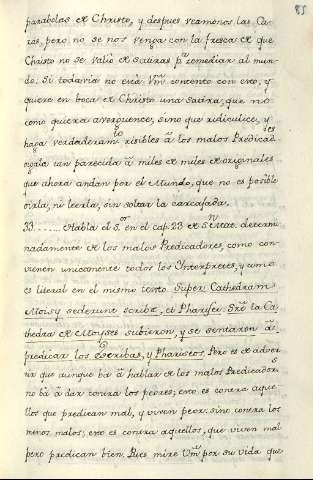 85
parabolas de Christo, y despues veamonos las Ca-
ras, pero no se nos venga con la fresca de que
Christo no se valiò de satiras pa. remediar al mun-
do. Si todavia no està Vm. contento con esto, y
quiere en boca de Christo una satira, que no
como quiera averguence, sino que ridiculice, y
haga verdaderamte. risibles à los malos Predicadres.
oygala tan parecida à miles de miles de originales
que ahora andan por el Mundo, que no es posible
oirla, ni leerla, sin soltar la carcajada.
33 ..... Habla el Sor. en el cap. 23 de Sn. Mat. determi-
nadamente de los malos Predicadores, como con-
vienen unicamente todos los Interpretes, y como
es literal en el mismo texto Super Cathedram
Moisy sederunt scribæ, et Pharisei. Sre. la Ca-
thedra de Moyses subieron, y se sentaron à
predicar los Escribas, y Phariseos. Pero es de adver-
tir que aunque bà à hablar de los malos Predicadors.
no bà à dar contra los peores; esto es contra aque-
llos que predican mal, y viven peor: sino contra los
menos malos; esto es contra aquellos, que viven mal
pero predican bien. Pues mire Vm. por su vida que